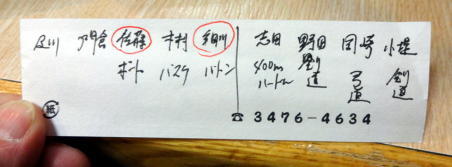 及川 戸倉 佐藤 木村 細川 志田 野田 岡崎 小堤
ボート バスケ バトン 400m ハードル 剣道 弓道 剣道
☎ 3476-4634